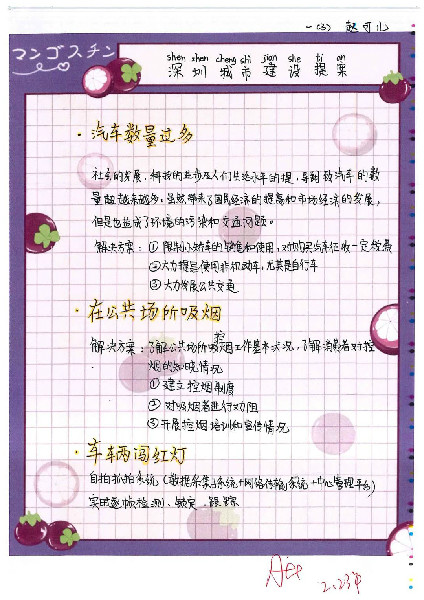 一(3) 赵可儿
マンゴスチン
shen zhen cheng shi jian she ti an
深圳城市建设提案
·汽车数量过多
社会的发展,科技的进步及人们生活水平的提,导致汽车的数
量越来越多,虽然带来了国民经济的提高和市场经济的发展,
但是也造成了环境的污染和交通问题。
解决方案:①限制小轿车的销售和使用,对购买汽车征收一定税费
②大力提倡使用非机动车,尤其是自行车
③大力发展公共交通
·在公共场所吸烟
解决方案:了解公共场所吸烟控工作基本状况,了解消费者对控
烟的知晓情况
①建立控烟制度
②对吸烟者进行劝阻
③开展控烟培训和宣传情况
·车辆闯红灯
自拍抓拍系统(数据采集系统+网络传输系统+中心管理平台)
实时逐帧检测、锁定、跟踪
A